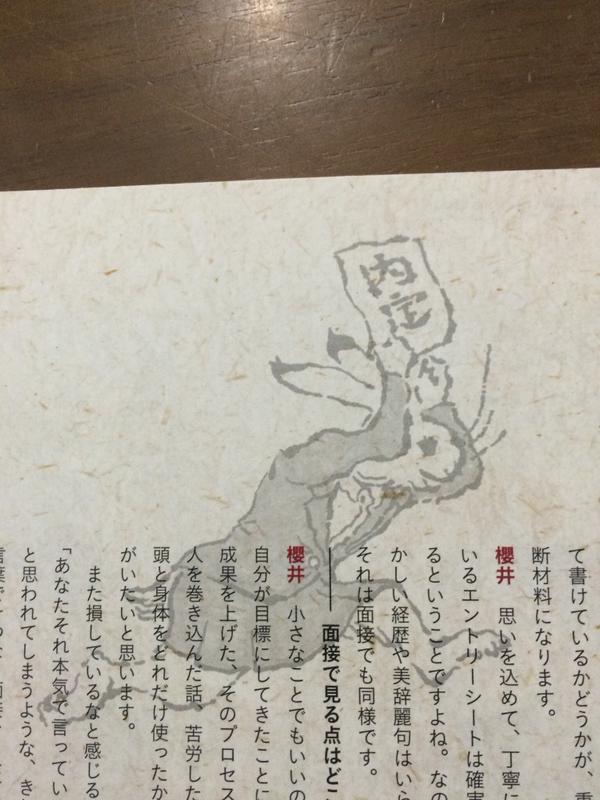 内定
て書けているかどうかが、重
断材料になります。
櫻井　思いを込めて、丁寧に
いるエントリーシートは確実
るということですよね。なの
かしい経歴や美辞麗句はいら
それは面接でも同様です。
――面接で見る点はどこ
櫻井　小さなことでもいいの
自分が目標にしてきたことに
成果を上げた、そのプロセス
人を巻き込んだ話、苦労した
頭と身体をどれだけ使ったか
がいたいと思います。
また損しているなと感じる
「あなたそれ本気で言ってい
と思われてしまうような、き